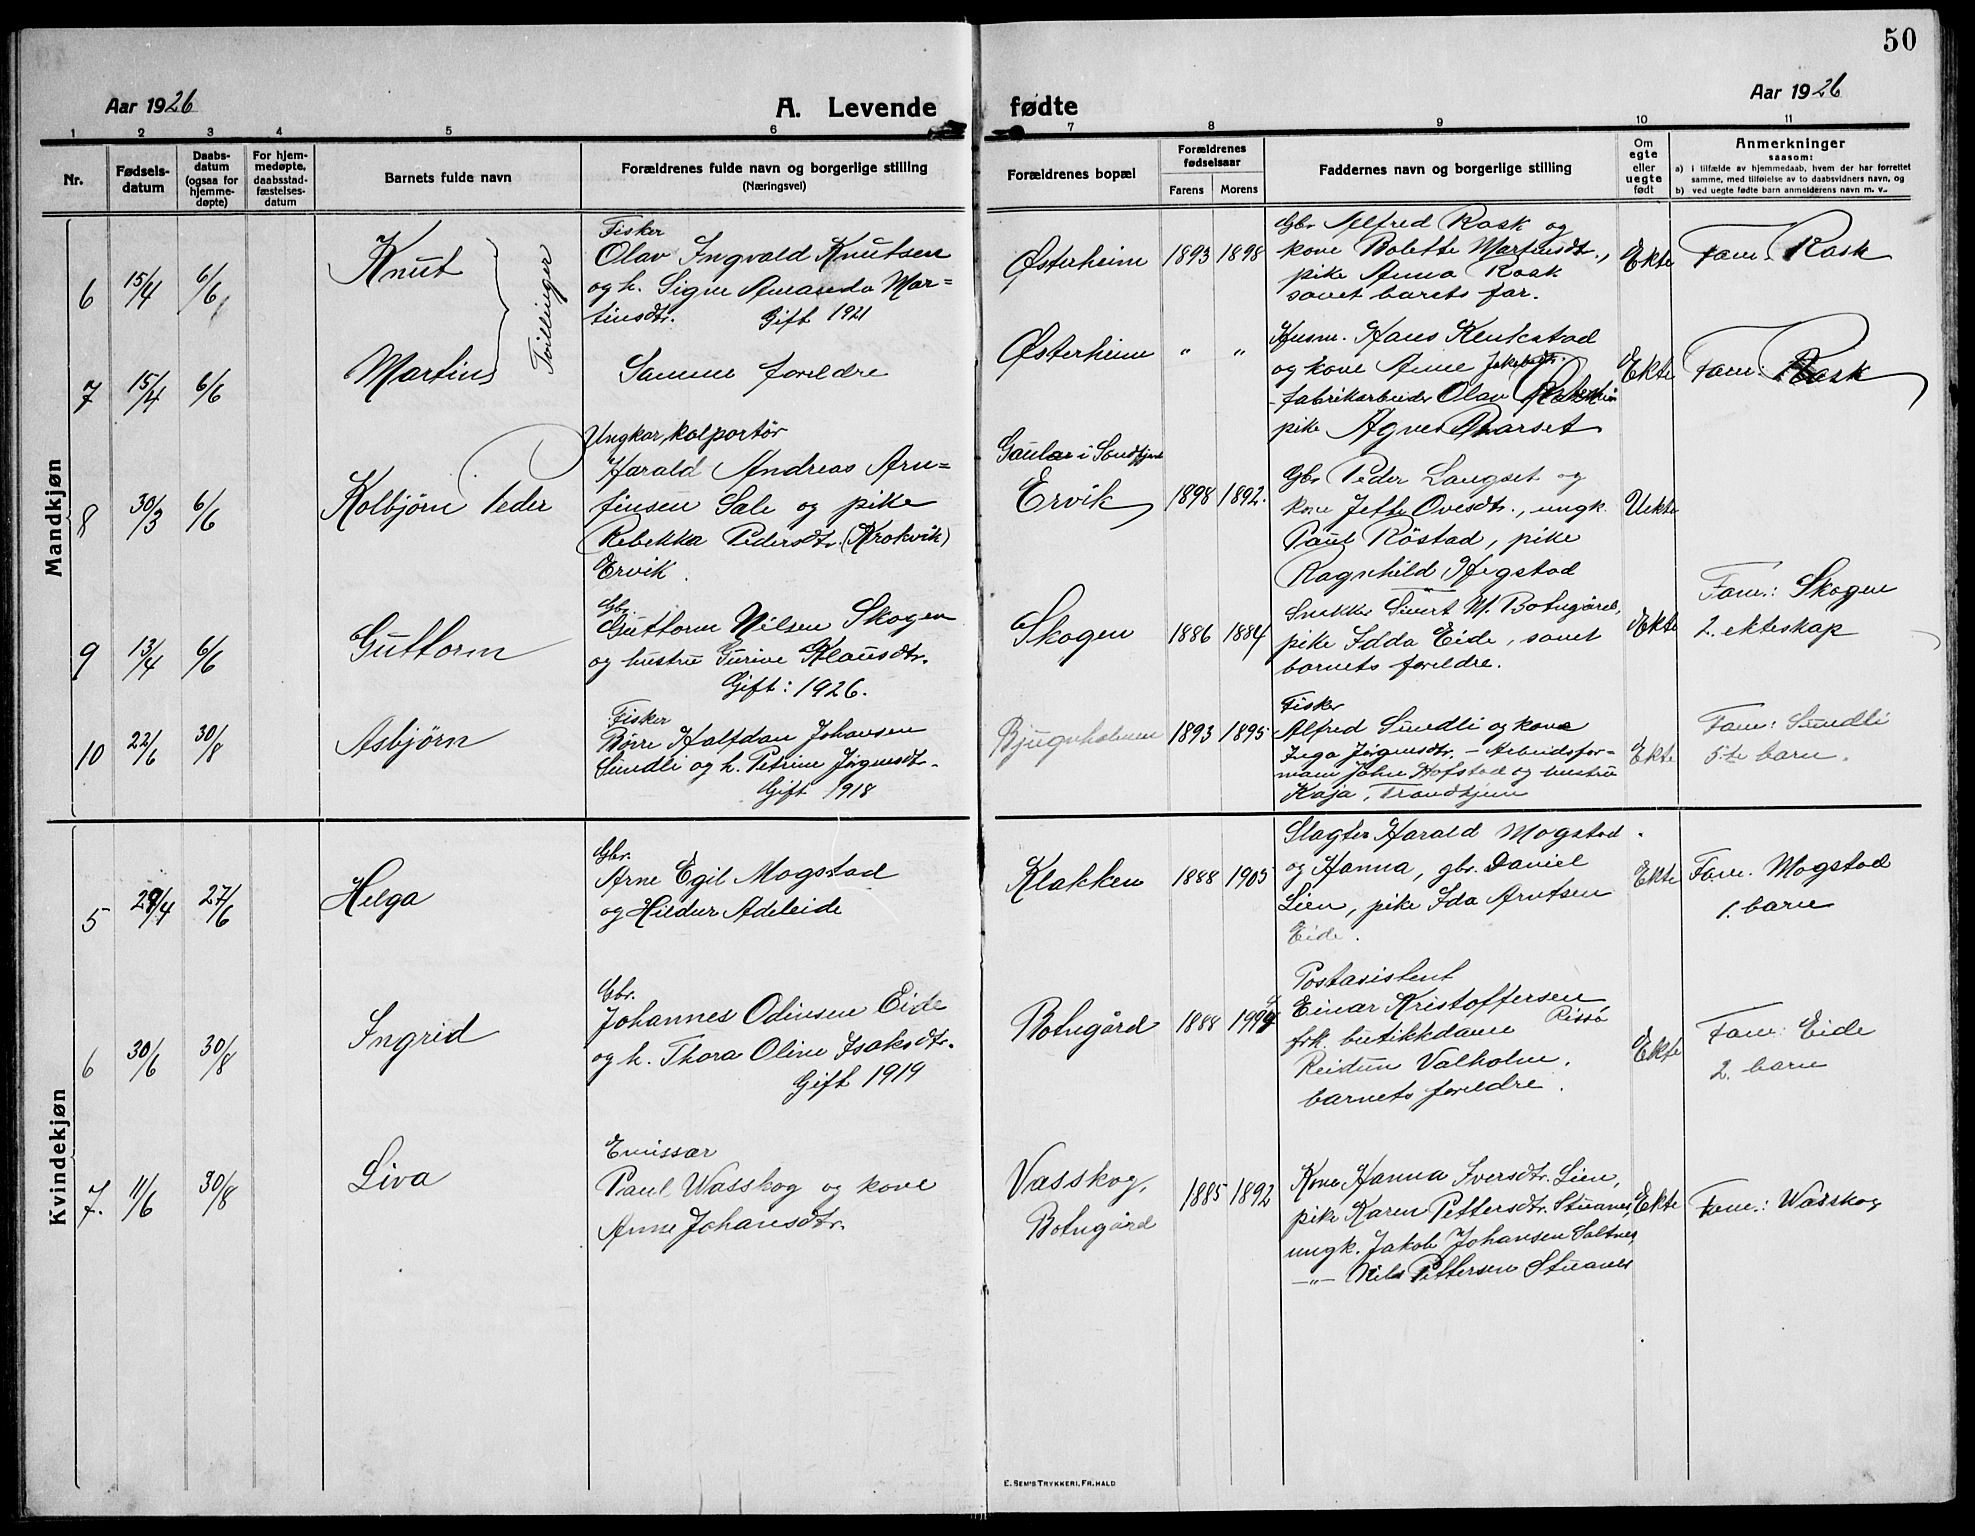 50
Aar 1926
A. Levende fødte
Aar 1926
1 2 3 4 5 6 7 8 9 10 11
Nr.
Fødsels-
datum
Daabs-
datum
(ogsaa for
hjemme-
døpte)
For hjem-
medøpte,
daabsstad-
fæstelses-
datum
Barnets fulde navn
Forældrenes fulde navn og borgerlige stilling
(Næringsvei)
Forældrenes bopæl
Forældrenes
fødselsaar
Farens Morens
Faddernes navn og borgerlige stilling
Om
egte
eller
uegte
født
Anmerkninger
saasom:
a) i tilfælde av hjemmedaab, hvem der har forrettet
samme, med tilføielse av to daabsvidners navn, og
b) ved uegte fødte barn anmelderens navn m. v.
Mandkjøn
6 15/4 6/6
Knut
Tvillinger
Fisker
Olav Ingvald Knutsen
og h. Signe Amanda Mar=
tinsdtr. Gift 1921
Østerheim 1893 1898
Gbr. Alfred Rask og
kone Bolette Martinsdtr.,
pike Anna Rask
samt barets far.
Ekte
Fam. Rask
7 15/4 6/6
Martin
Samme foreldre
Østerheim " "
Husm. Hans
og kone Anne
- fabrikarbeider Olav
pike Agnes
Ekte
Fam. Rask
8 30/3 6/6
Kolbjørn Peder
Ungkar, kolportør
Harald Andreas Arn=
finsen Sale og pike
Rebekka Pedersdtr. (Krokvik)
Ervik.
Gaular i Søndfjord
Ervik 1898 1892.
Gbr. Peder Langset og
kone Ovesdtr., ungk.
Paul Röstad, pike
Ragnhild Hegstad
Uekte
9 13/4 6/6
Guttorm
Gbr.
Guttorm Nilsen Skogen
og hustru Gurine Klausdtr.
Gift: 1926.
Skogen 1886 1884
Snekker Sivert M. Botngård,
pike Idda Eide, samt
barnets foreldre.
Ekte
Fam.: Skogen
2. ekteskap
10 22/6 30/8
Asbjørn
Fisker
Børre Halfdan Johansen
Sundli og h. Petrine Jørgensdtr.
Gift 1918
Bjugnholmen 1893 1895
Fisker
Alfred Sundli og kone
Inga Jørgensdtr. - Arbeidsfor-
mann John Hofstad og hustru
Kaja, Trondhjem
Ekte
Fam: Sundli
5te barn.
Kvindekjøn
5 29/4 27/6
Helga
Gbr.
Arne Egil Mogstad
og Hildur Adeleide
Klakken 1888 1905
Slagter Harald Mogstad
og Hanna, gbr. Daniel
Lien, pike Ida Arntsen
Eide.
Ekte
Fam. Mogstad
1. barn
6 30/6 30/8
Ingrid
Gbr.
Johannes Odinsen Eide
og h. Thora Oline Isaksdtr.
Gift 1919
Botngård 1888
Postasistent
Einar Kristoffersen
Rissa
frk. butikkdame
Reidun Valholm,
barnets foreldre.
Ekte
Fam: Eide
2. barn
7. 11/6 30/8
Liva
Emissær
Paul Wasskog og kone
Anne Johansdtr.
Vasskog,
Botngård
1885 1892
Kone Hanna Iversdtr. Lien,
pike Karen Pettersdtr. Stuanes,
ungk. Jakob Johansen Saltnes,
—"— Nils Pettersen Stuanes
Ekte
Fam.: Wasskog
E. SEM'S TRYKKERI, FR. HALD